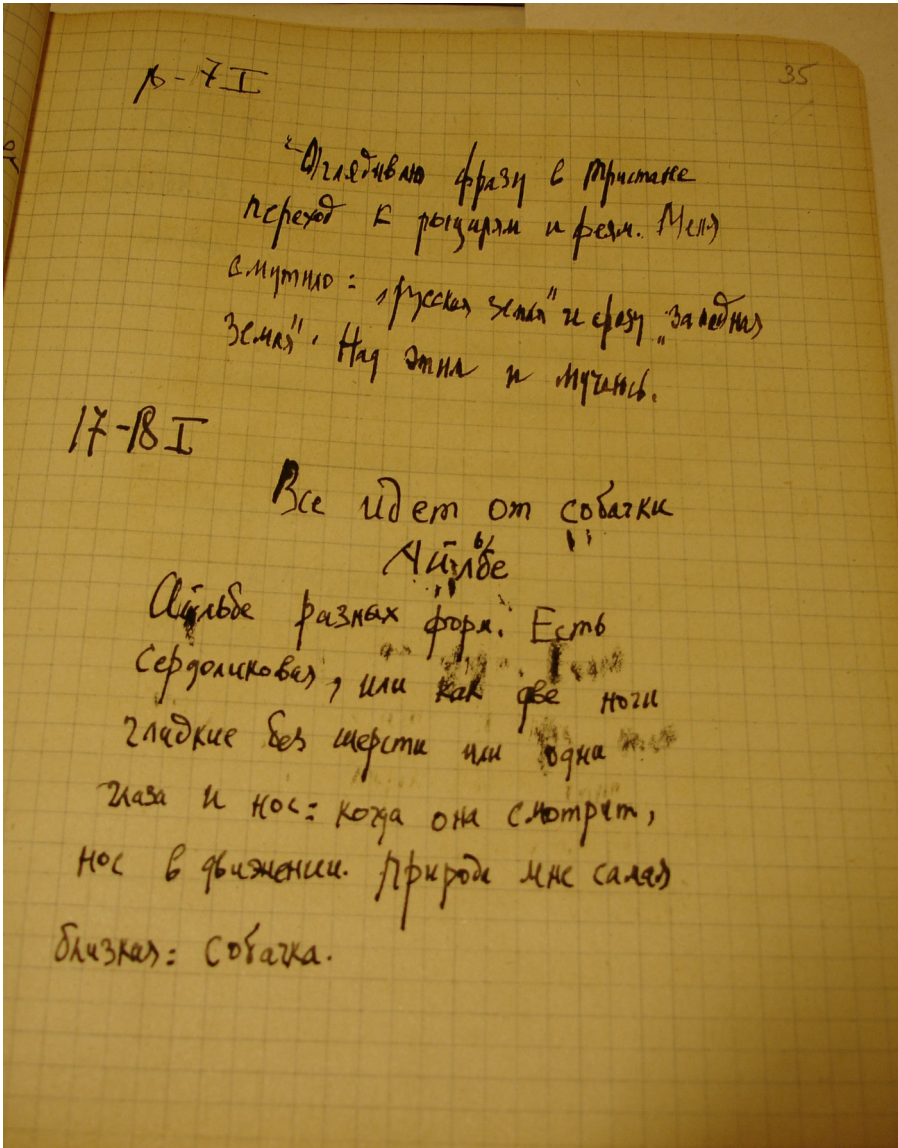 35
7 I
Оглядываю фразу в Тристане
переход к рыцарям и феям. Меня
смутило: „русская земля" и сразу „западная
земля". Над этим и мучаюсь.
17-18 I
Все идет от собачки
Айльбе
Айльбе разных форм. Есть
сердоликовая, или как две ноги
гладкие без шерсти или одни
глаза и нос: когда она смотрит,
нос в движении. Природа мне самая
близкая: собачка.